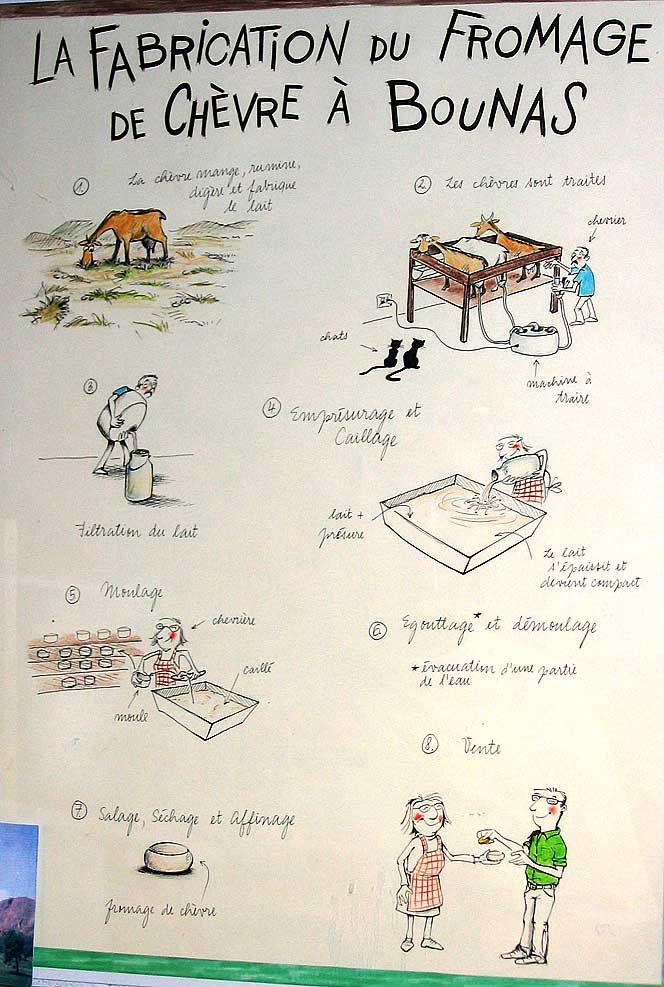 LA FABRICATION DU FROMAGE
DE CHÈVRE À BOUNAS
1 La chèvre mange, rumine,
digère et fabrique
le lait
2. Les chèvres sont traites
chevrier
chats
machine à
traire
3
Filtration du lait
4 Emprésurage et
Caillage
lait +
présure
Le lait
s'épaissit et
devient compact
5 Moulage
chevrière
caillé
moule
6 Egouttage* et démoulage
*évacuation d'une partie
de l'eau
7 Salage, Séchage et Affinage
fromage de chèvre
8. Vente